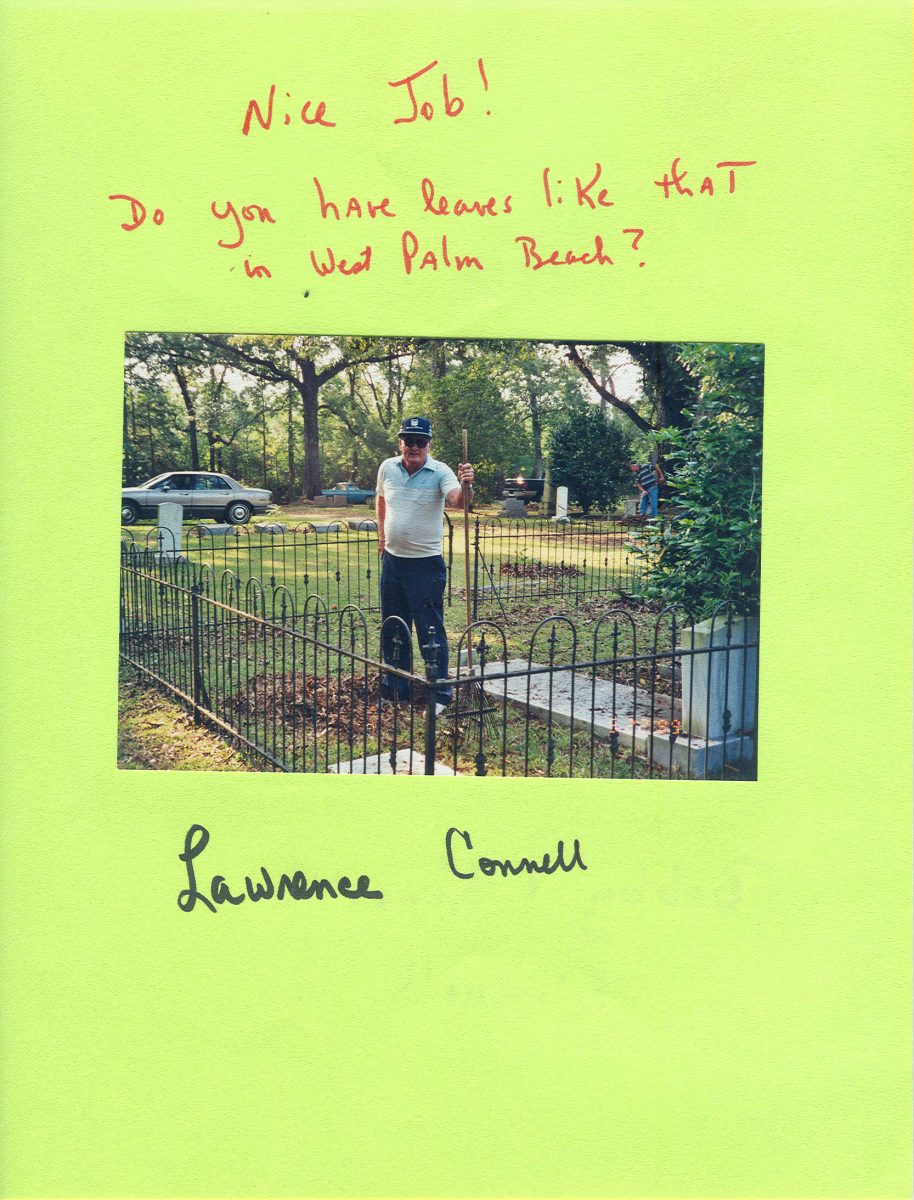 Nice Job!
Do you have leaves like that
in West Palm Beach?
Lawrence Connell